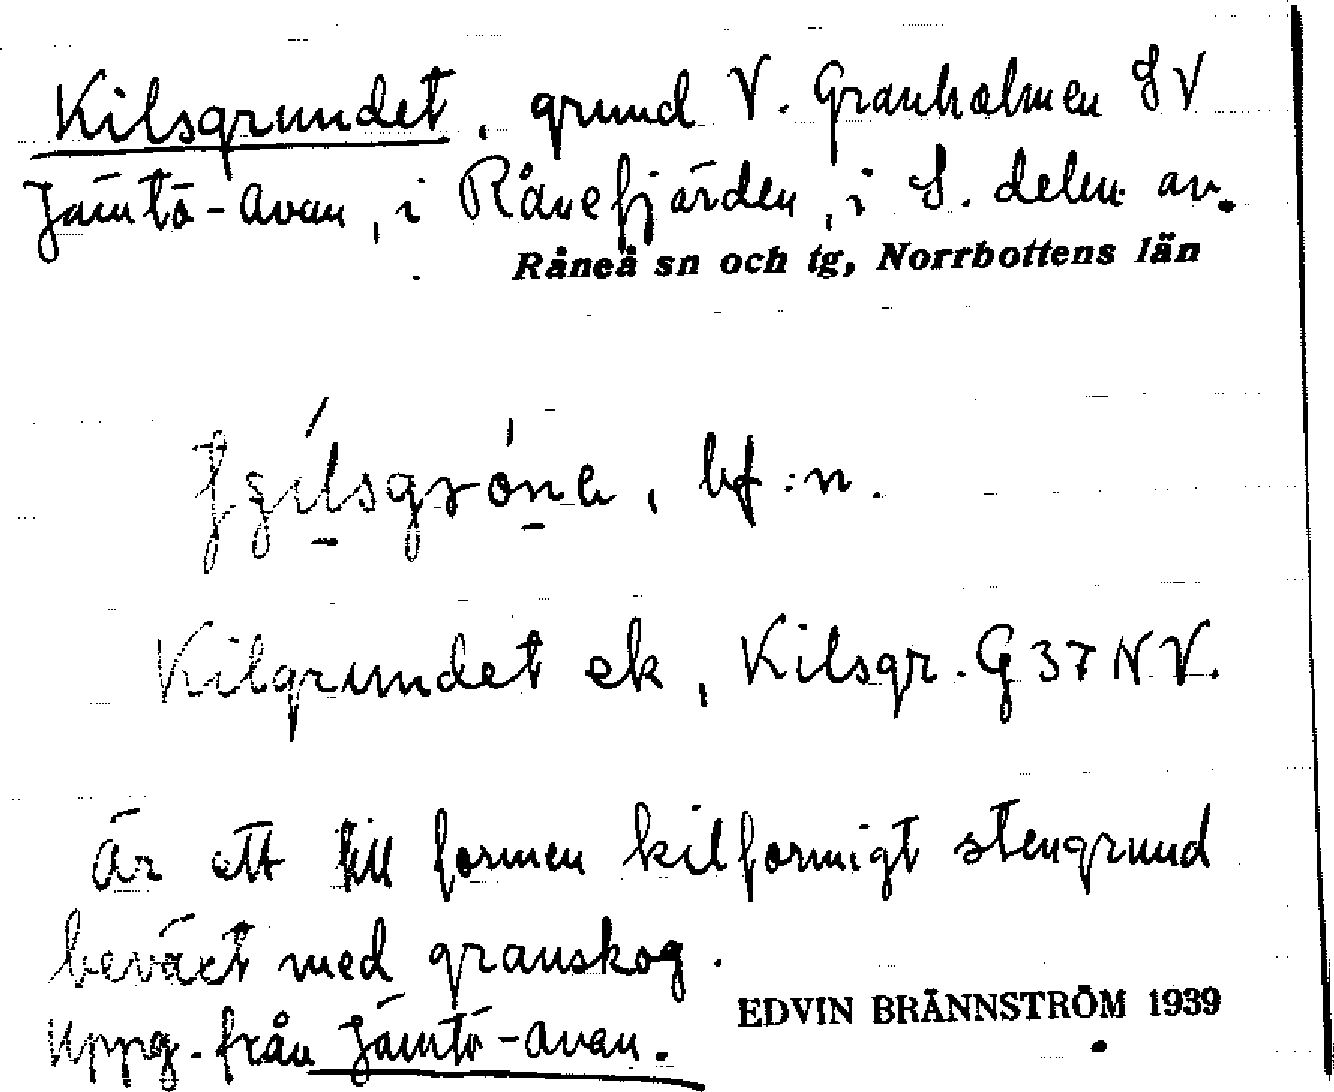 Kilsgrundet, grund V. Granholmen SV
Jämtö-Avan, i Rånefjärden, i S. delen av
Råneå sn och tg, Norrbottens län
bf :n.
Kilgrundet ek, Kilsgr. G 37 NV.
Är ett till formen kilformigt stengrund
beväxt med granskog.
Uppg. från Jämtö-Avan.
EDVIN BRÄNNSTRÖM 1939